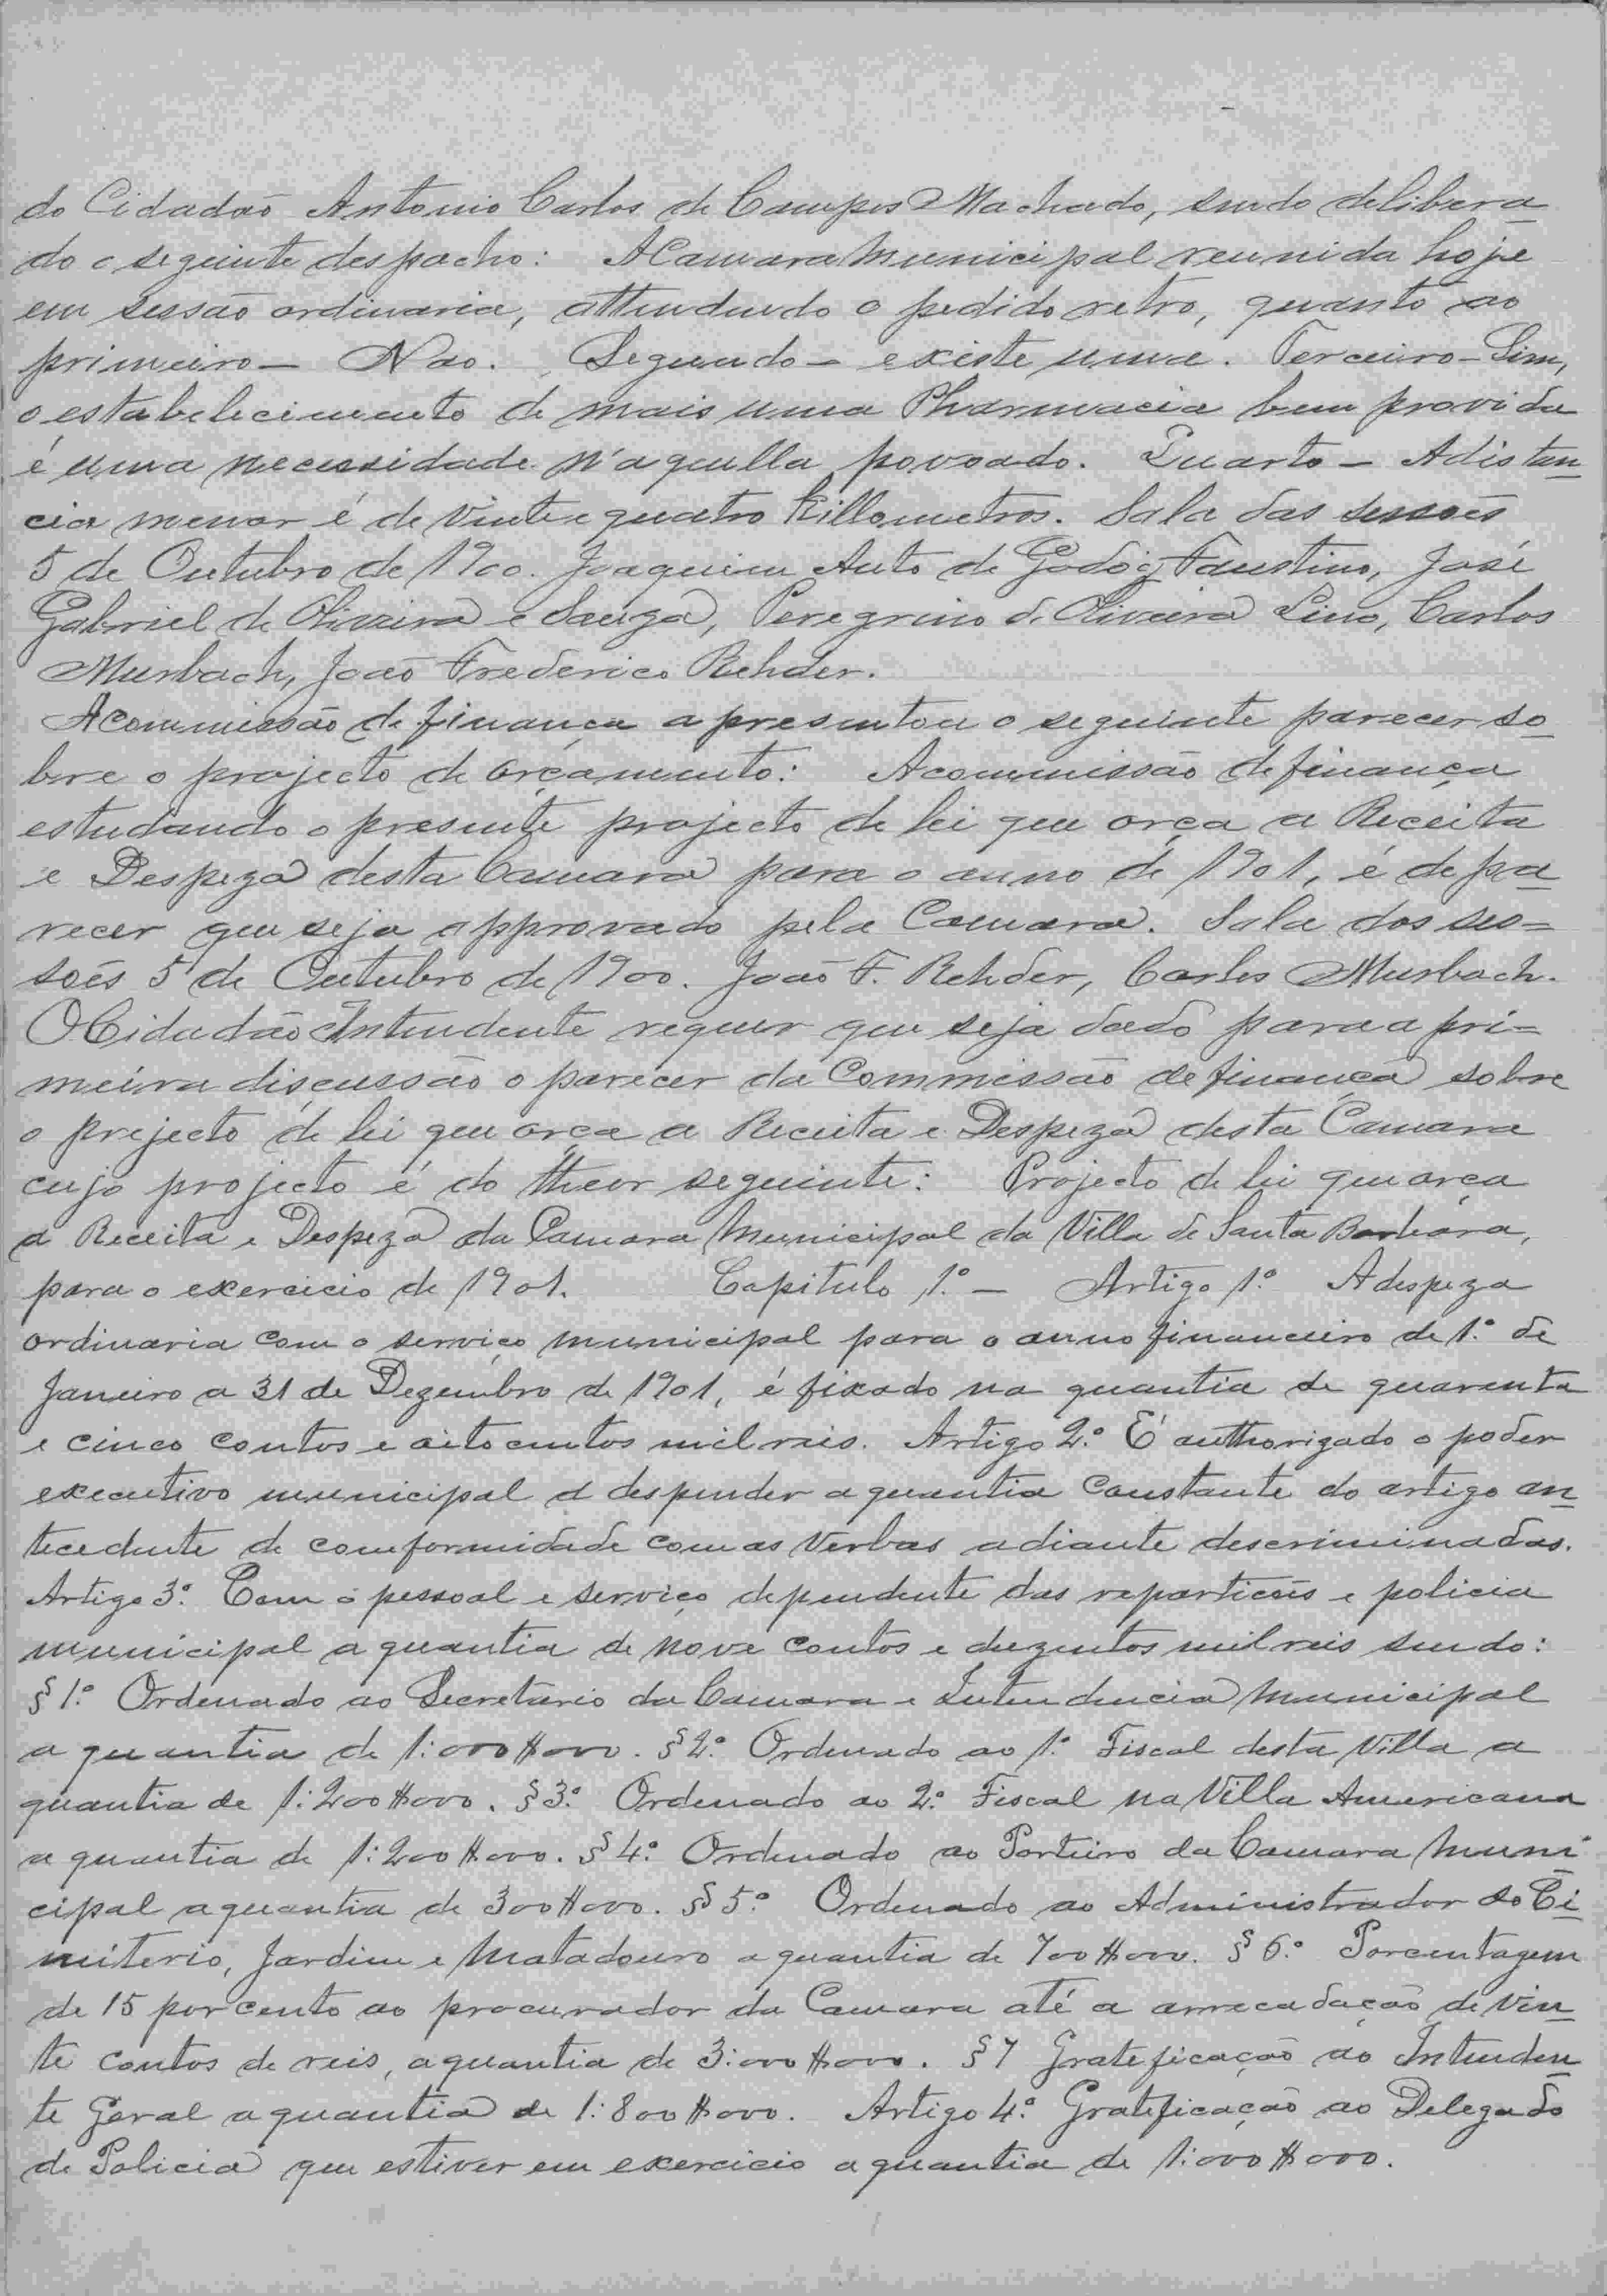 do Cidadão Antonio Carlos de Campos Machado, sendo delibera
do o seguinte despacho: A Camara Municipal reunida hoje
em sessão ordinaria, attendendo o pedido retro, quanto ao
primeiro — Não. Segundo — existe uma. Terceiro — Sim,
o estabelecimento de mais uma Pharmacia bem provida
é uma necessidade n'aquella povoado. Quarto — A distan
cia menor é de vinte e quatro Killometros. Sala das sessões
5 de Outubro de 1900. Joaquim Auto de Godoy, Faustino, José
Gabriel de Oliveira e Souza, Peregrino d. Oliveira Lino, Carlos
Murbach, João Frederico Rehder.
A Commissão de finança apresentou o seguinte parecer so
bre o projecto de orçamento: A commissão de finança
estudando o presente projecto de lei que orça a Receita
e Despeza desta Camara para o anno de 1901, é de pa
recer que seja approvado pela Camara. Sala das ses=
soẽs 5 de Outubro de 1900. João F. Rehder, Carlos Murbach.
O Cidadão Intendente requer que seja dado para a pri=
meira discussão o parecer da Commissão de finança sobre
o projecto de lei que orça a Receita e Despeza desta Camara
cujo projecto é do theor seguinte: Projecto de lei que orça
a Receita e Despeza da Camara Municipal da Villa de Santa Barbara,
para o exercicio de 1901. Capitulo 1.º — Artigo 1.º A despeza
ordinaria com o serviço municipal para o anno financeiro de 1.º de
Janeiro a 31 de Dezembro de 1901, é fixado na quantia de quarenta
e cinco contos e oitocentos mil reis. Artigo 2.º É authorizado o poder
executivo municipal a despender a quantia constante do artigo an
tecedente de comformidade com as verbas adiante descriminadas.
Artigo 3.º Com o pessoal e serviço dependente das reparticoẽs e policia
municipal a quantia de nove contos e duzentos mil reis sendo:
§ 1.º Ordenado ao Secretario da Camara e Intendencia Municipal
a quantia de 1:000$000. § 2.º Ordenado ao 1.º Fiscal desta Villa a
quantia de 1:200$000. § 3.º Ordenado ao 2.º Fiscal na Villa Americana
a quantia de 1:200$000. § 4.º Ordenado ao Porteiro da Camara Muni
cipal a quantia de 300$000. § 5.º Ordenado ao Administrador do Ci
miterio, Jardim e Matadouro a quantia de 700$000. § 6.º Porcentagem
de 15 por cento ao procurador da Camara até a arrecadação de vin
te contos de reis, a quantia de 3:000$000. § 7 Gratificação ao Intenden
te Geral a quantia de 1:800$000. Artigo 4.º Gratificação ao Delegado
de Policia que estiver em exercicio a quantia de 1:000$000.